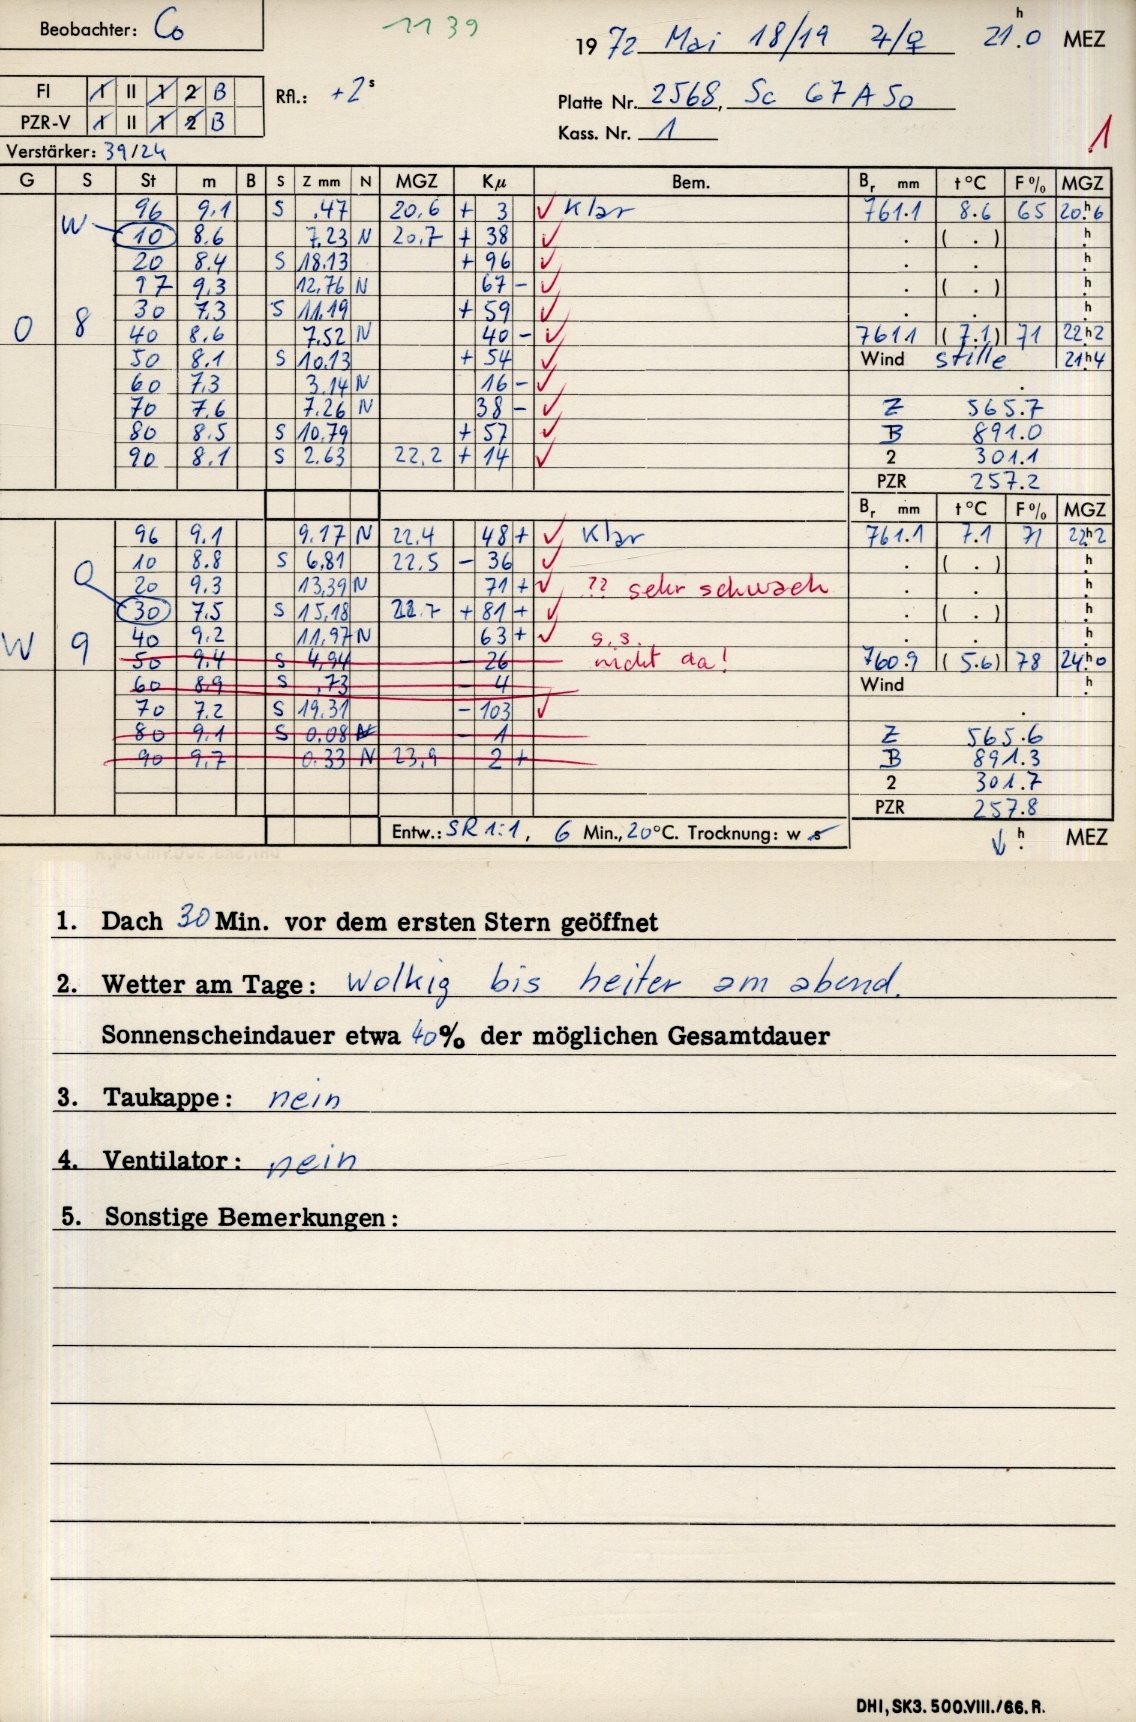 Beobachter: Co 1139 1972 Mai 18/19 ♃/♀ 21.h0 MEZ
FI I II 1 2 B Rfl.: +2s Platte Nr. 2568, Sc 67 A 50
PZR-V I II 1 2 B Kass. Nr. 1
Verstärker: 39/24 1
G S St m B S Z mm N MGZ Kμ Bem. Br mm t°C F% MGZ
96 9.1 S .47 20.6 + 3 ✓ Klar 761.1 8.6 65 20.h6
W 10 8.6 7.23 N 20.7 + 38 ✓ . ( . ) h
20 8.4 S 18.13 + 96 ✓ . . h
97 9.3 12.76 N 67 - ✓ . ( . ) h
30 7.3 S 11.19 + 59 ✓ . . h
O 8 40 8.6 7.52 N 40 - ✓ 761.1 (7.1) 71 22.h2
50 8.1 S 10.13 + 54 ✓ Wind stille 21.h4
60 7.3 3.14 N 16 - ✓ .
70 7.6 7.26 N 38 - ✓ Z 565.7
80 8.5 S 10.79 + 57 ✓ B 891.0
90 8.1 S 2.63 22,2 + 14 ✓ 2 301.1
PZR 257.2
Br mm t°C F% MGZ
96 9.1 9.17 N 22.4 48 + ✓ Klar 761.1 7.1 71 22.h2
10 8.8 S 6.81 22.5 - 36 ✓ . ( . ) h
O 20 9.3 13,39 N 71 + ✓ ?? sehr schwach . . h
30 7.5 S 15,18 22.7 + 81 + ✓ . ( . ) h
W 9 40 9.2 11,97 N 63 + ✓ s.s. . . h
50 9.4 S 4,94 - 26 nicht da! 760.9 (5.6) 78 24.h0
60 8.9 S .73 - 4 Wind h
70 7.2 S 19.31 - 103 ✓ .
80 9.1 S 0.08 N - 1 Z 565.6
90 9.7 0.33 N 23,9 2 + B 891.3
2 301.7
PZR 257.8
Entw.: SR 1:1, 6 Min., 20°C. Trocknung: w s ↓ h. MEZ
1. Dach 30 Min. vor dem ersten Stern geöffnet
2. Wetter am Tage: wolkig bis heiter am abend.
Sonnenscheindauer etwa 40% der möglichen Gesamtdauer
3. Taukappe: nein
4. Ventilator: nein
5. Sonstige Bemerkungen:
DHI, SK3. 500.VIII./66. R.